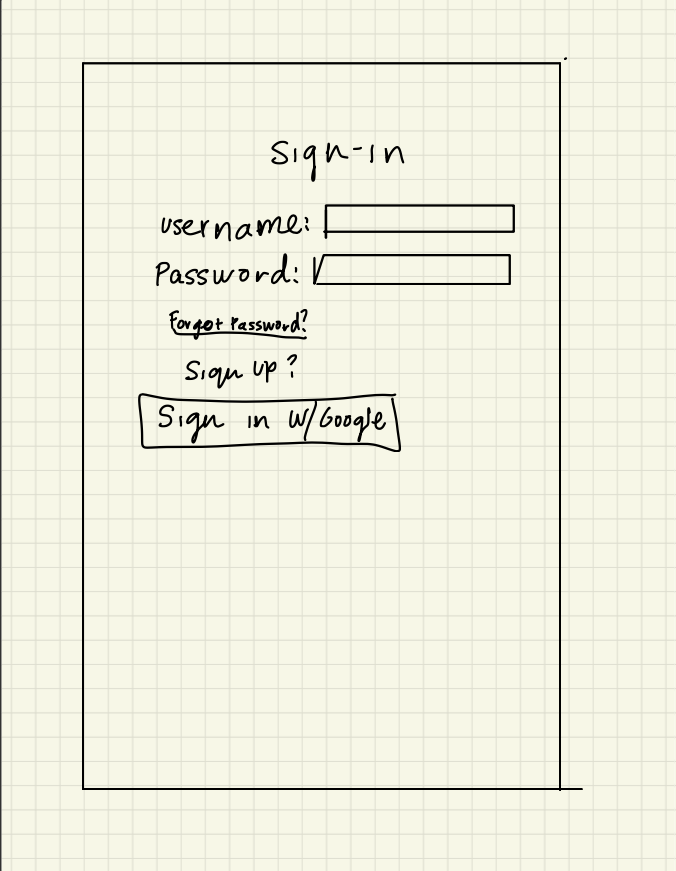 Sign-in
username:
Password:
Forgot Password?
Sign up?
Sign in w/Google